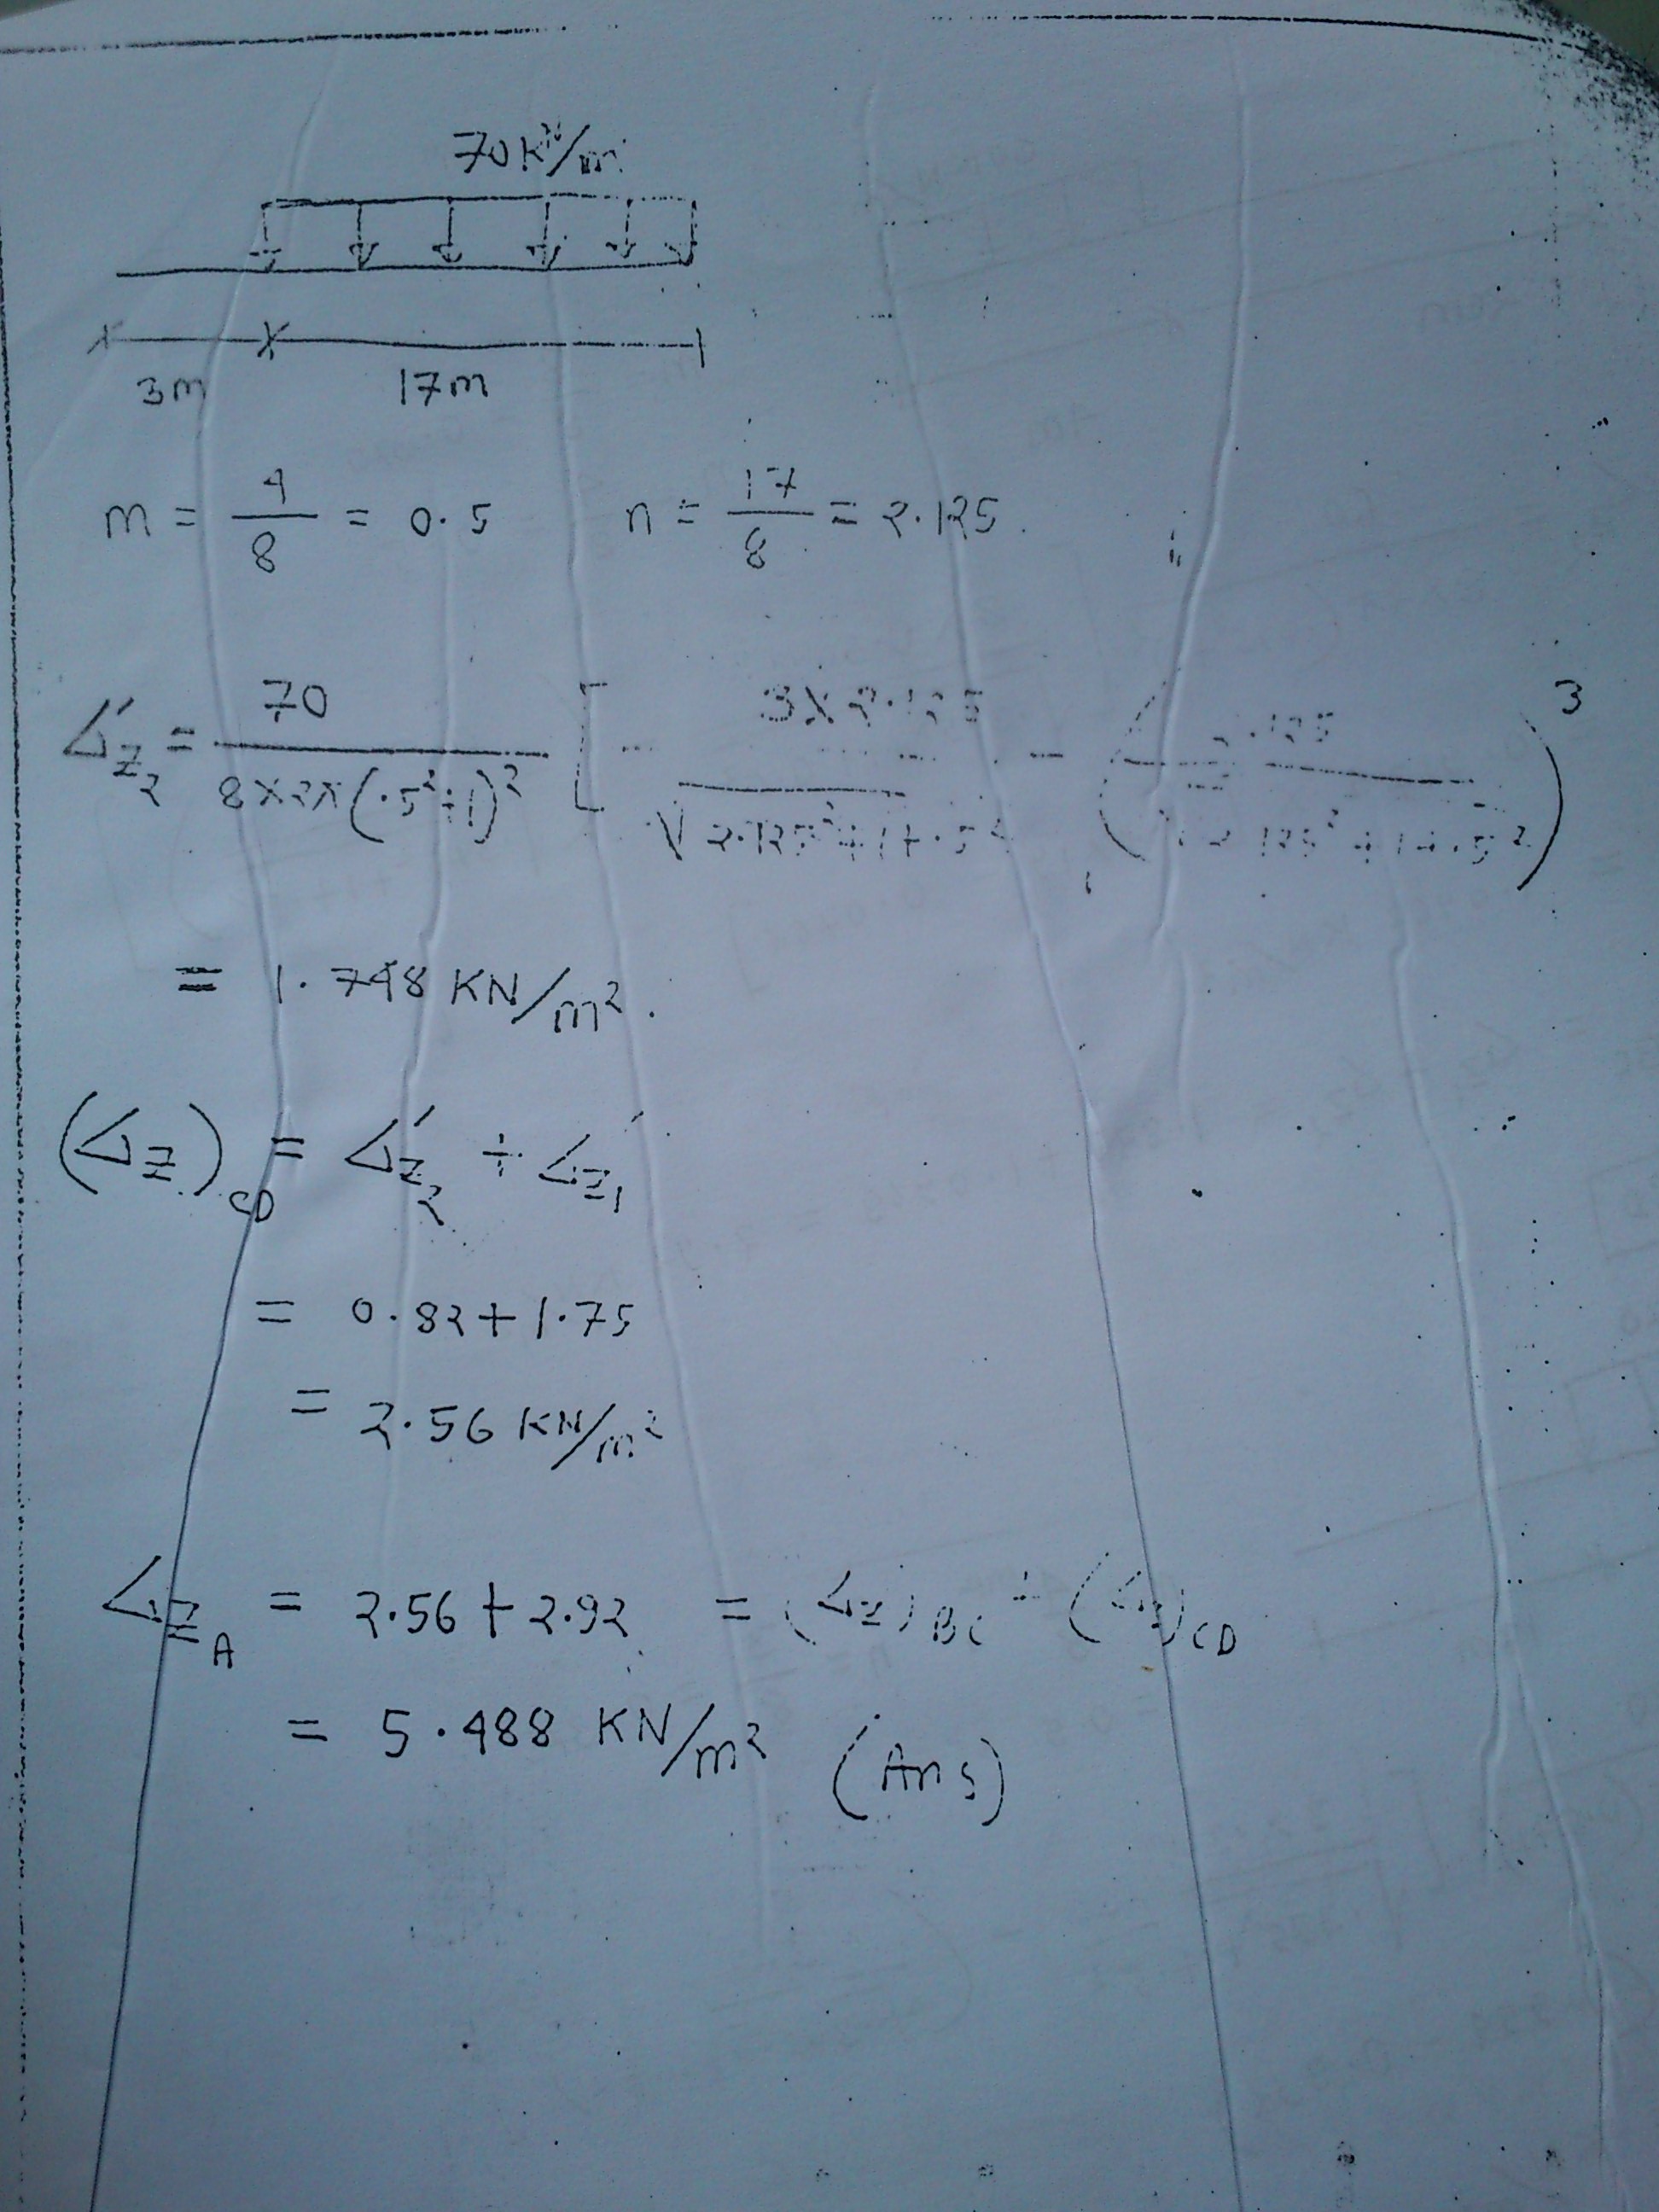 70 KN/m
3m 17m
m = 4/8 = 0.5 n = 17/8 = 2.125
σ'z2 = 70/(8×2π(.5²+1)²) [ 3×2.125/√(2.125²+1+.5²) - (2.125/√(2.125²+1+.5²))³
= 1.748 KN/m².
(σz)CD = σ'z2 + σz1'
= 0.82+1.75
= 2.56 KN/m²
σzA = 2.56+2.92 = (σz)BC + (σz)CD
= 5.488 KN/m² (Ans)